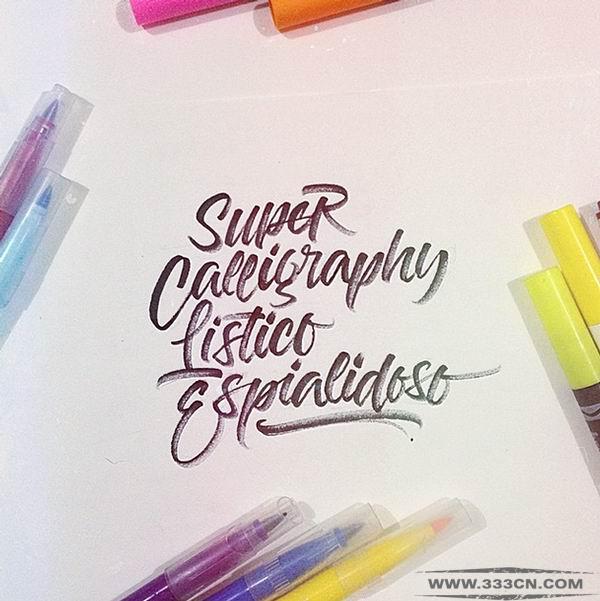 SupeR
Calligraphy
Listico
Espialidoso
WWW.333CN.COM